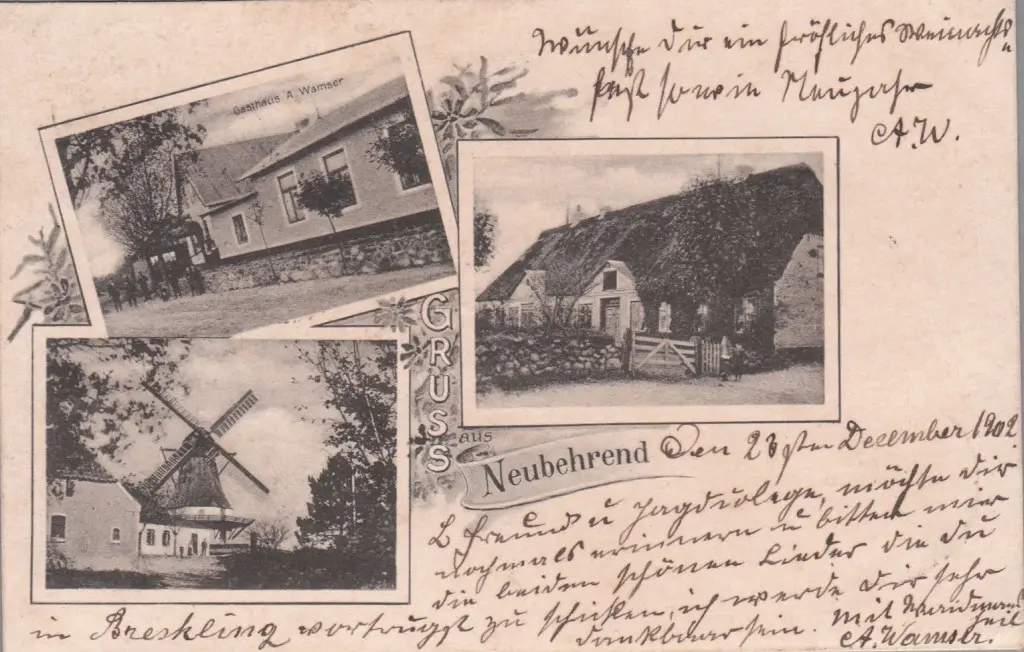 Wünsche Dir ein fröhliches Weinachts=
fest sowie Neujahr
A.W.
Gasthaus A. Wamser
GRUSS
aus
Neubehrend
Den 23sten Dezember 1902
L Freund u Jagdcolege, möchte dir
nochmals erinnern u bitten mir
die beiden schönen Lieder die du
in Breskling vortrugst zu schicken, ich werde Dir sehr
dankbaar sein. Mit Waidmans
heil
A. Wamser.